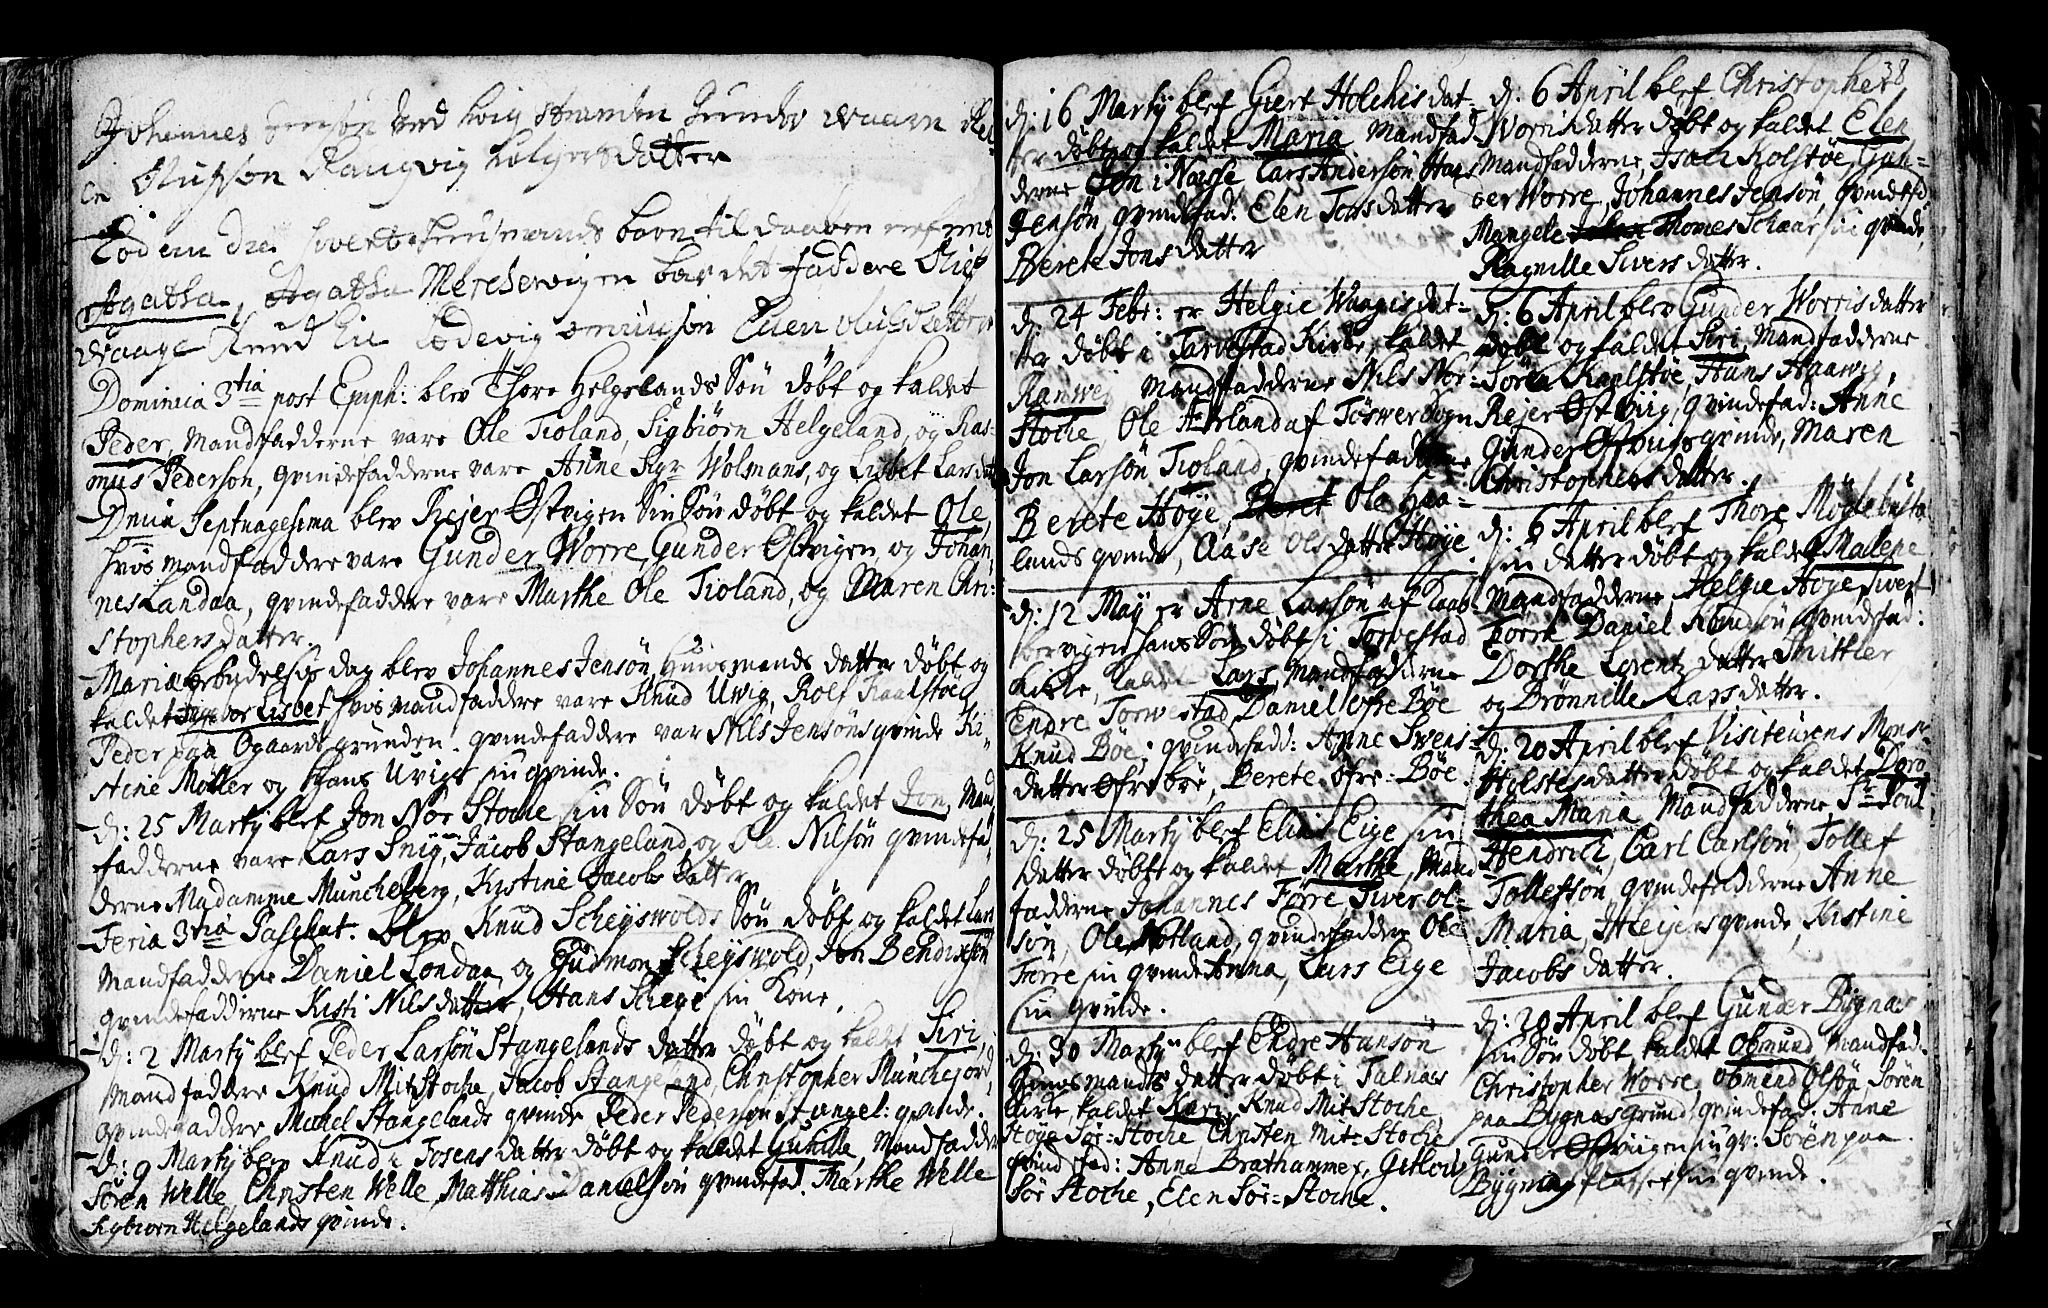 Johannes Jensøn ved hvig stranden Gunder waare
Olufson Rangvig holgersdatter
Eodem die Siverts huusmands barn til daaben nefnt
Agatha, Agatha Merchewigen bar det faddere Olif
Waage Knud Lie Lodevig omunson Ellen olufsdatter
Dominica 3tia post Epiph: blev Thore Helgelands Søn døbt og kaldet
Peder, Mandfadderne vare Ole Tioland, Sigbiørn Helgeland, og Ras-
mus Pederson, qvindefadderne vare Anne Sigr Wolmans, og Lisbet Larsdat
Dnica Septuagesima blev Rejer Østvigen Sin Søn døbt og kaldet Ole,
hvis mandfaddere vare Gunder Worre, Gunder Østvigen, og Johan-
nes Landaa, qvindefaddere vare Marthe Ole Tioland, og Maren Chri-
stophersdatter.
Mariæ bebudelsis dag blev Johannes Jensøn Huusmands datter døbt og
kaldet Lisbet hvis mandfaddere vare Knud Uvig, Rolf Kaalstøe
Peder paa Ogaards grunden. qvindefaddere var Nils Jensøns qvinde Ki-
stine Møller og Hans Uvigs sin qvinde.
d: 25 Martij blef Jon Nor Stoche sin Søn døbt og kaldet Jon, Mand
fadderne vare Lars Snig, Jacob Stangeland og Ole Nilsøn qvindefa-
derne Madamme Muncheberg, Kistine Jacobs datter
Feria 3tia Paschat: blev Knud Scheyswolds Søn døbt og kaldet Lars
Mandfadderne Daniel Londaa og Gudmon Scheyswold, Jon Bendixsøn
qvindefadderne Kisti Nilsdatter, Hans Schege sin Kone.
d: 2 Martij blef Peder Larsøn Stangelands datter døbt og kaldet Siri,
Mandfaddere Knud Mit Stoche, Jacob Stangeland, Christopher Munchejord
qvindefaddere Machel Stangelands qvinde Peder Pedersøn Stangel: qvinde.
d: 9 Martij blev Knud i Tosens datter døbt og kaldet Gunille, Mandfadder
Søren Welle, Christen Welle, Matthias Danielsøn qvindefad. Marthe Welle
Sigbiørn Helgelands qvinde.
38
d: 16 Martij blef Giert Holchis dat-
ter døbt og kaldet Maria Mandfad-
derne Jon i Naese Lars Andersøn Hans
Jensøn, qvindefad: Elen Torsdatter
Berete Jonsdatter
d: 24 Febr: er Helgie Waagis dat-
ter døbt i Tarvestad Kirke, kaldet
Ranweg Mandfadderne Nils Nor-
Stoche, Ole Ærland af Toswer Sogn
Jon Larsøn Tioland, qvindefadderne
Berete Høye, Beret Ole Haa-
lands qvinde, Aase Olsdatter Høye
d: 12 Maij er Arne Larsøn af
vigen hans Søn døbt i Torvestad
Kirke, kaldet Lars, Mandfadderne
Endre Torwestad, Daniel Øfre Bøe
Knud Bøe; qvindefadd: Anne Swens-
datter Øfre bøe, Berete øfre-Bøe.
d: 25 Martij blef Elias Eige sin
datter døbt og kaldet Marthe, Mand
fadderne Johannes Førre Siver ol-
søn, Ole Notland, qvindefaddere Ole
Førre sin qvinde Anna, Lars Eige
sin qvinde.
d: 30 Martij blef Endre Hanson
Huusmands datter døbt i Falnæs
kirke, kaldet Kari, Knud Mit Stoche
Høye Sør-Stoche Christen Mit-Stoche
qvindfad: Anne Brathammer, Gitlow
Sør Stoche, Elen Sør-Stoche.
d: 6 April blef Christopher
Worris datter døbt og kaldet Elen
Mandfadderne, Isach Kolstøe, Gun-
der Worre, Johannes Jensøn, qvindefad
Mangele Thomes Schaar sin qvinde,
Ragnille Sivers datter.
d: 6 April blev Gunder Worris datter
døbt og kaldet Siri, Mandfadderne
Søren Kaalstøe, Hans Haawig,
Rejer Østviig, qvindefad: Anne
Gunder Østviigs qvinde, Maren
Christophers datter.
d: 6 April blef Thore Møglebusta
sin datter døbt og kaldet Mallene
Mandfadderne, Helgie Høye, Sivert
Førre Daniel Knudsøn, qvindefad:
Dorthe Lorentz datter Snittler
og Brønnelle Larsdatter.
d: 20 April blef Visiteurens Monsr
Holstes datter døbt og kaldet Doro
thea Maria, Mandfadderne Sr Poul
Hendrich, Carl Carlsøn, Tollef
Tollefsøn qvindefadderne Anne
Maria, Meijers qvinde, Kistine
Jacobs datter.
d: 20 April blef Gunder Bygnæs
sin Søn døbt kaldet Obmund, Mandfad.
Christopher Worre, Obmund Olsøn Søren
paa Bygnæs grund, qvindefad: Anne
Gunder Østviigen sin qv: Søren paa
Bygnæs plats sin qvinde.